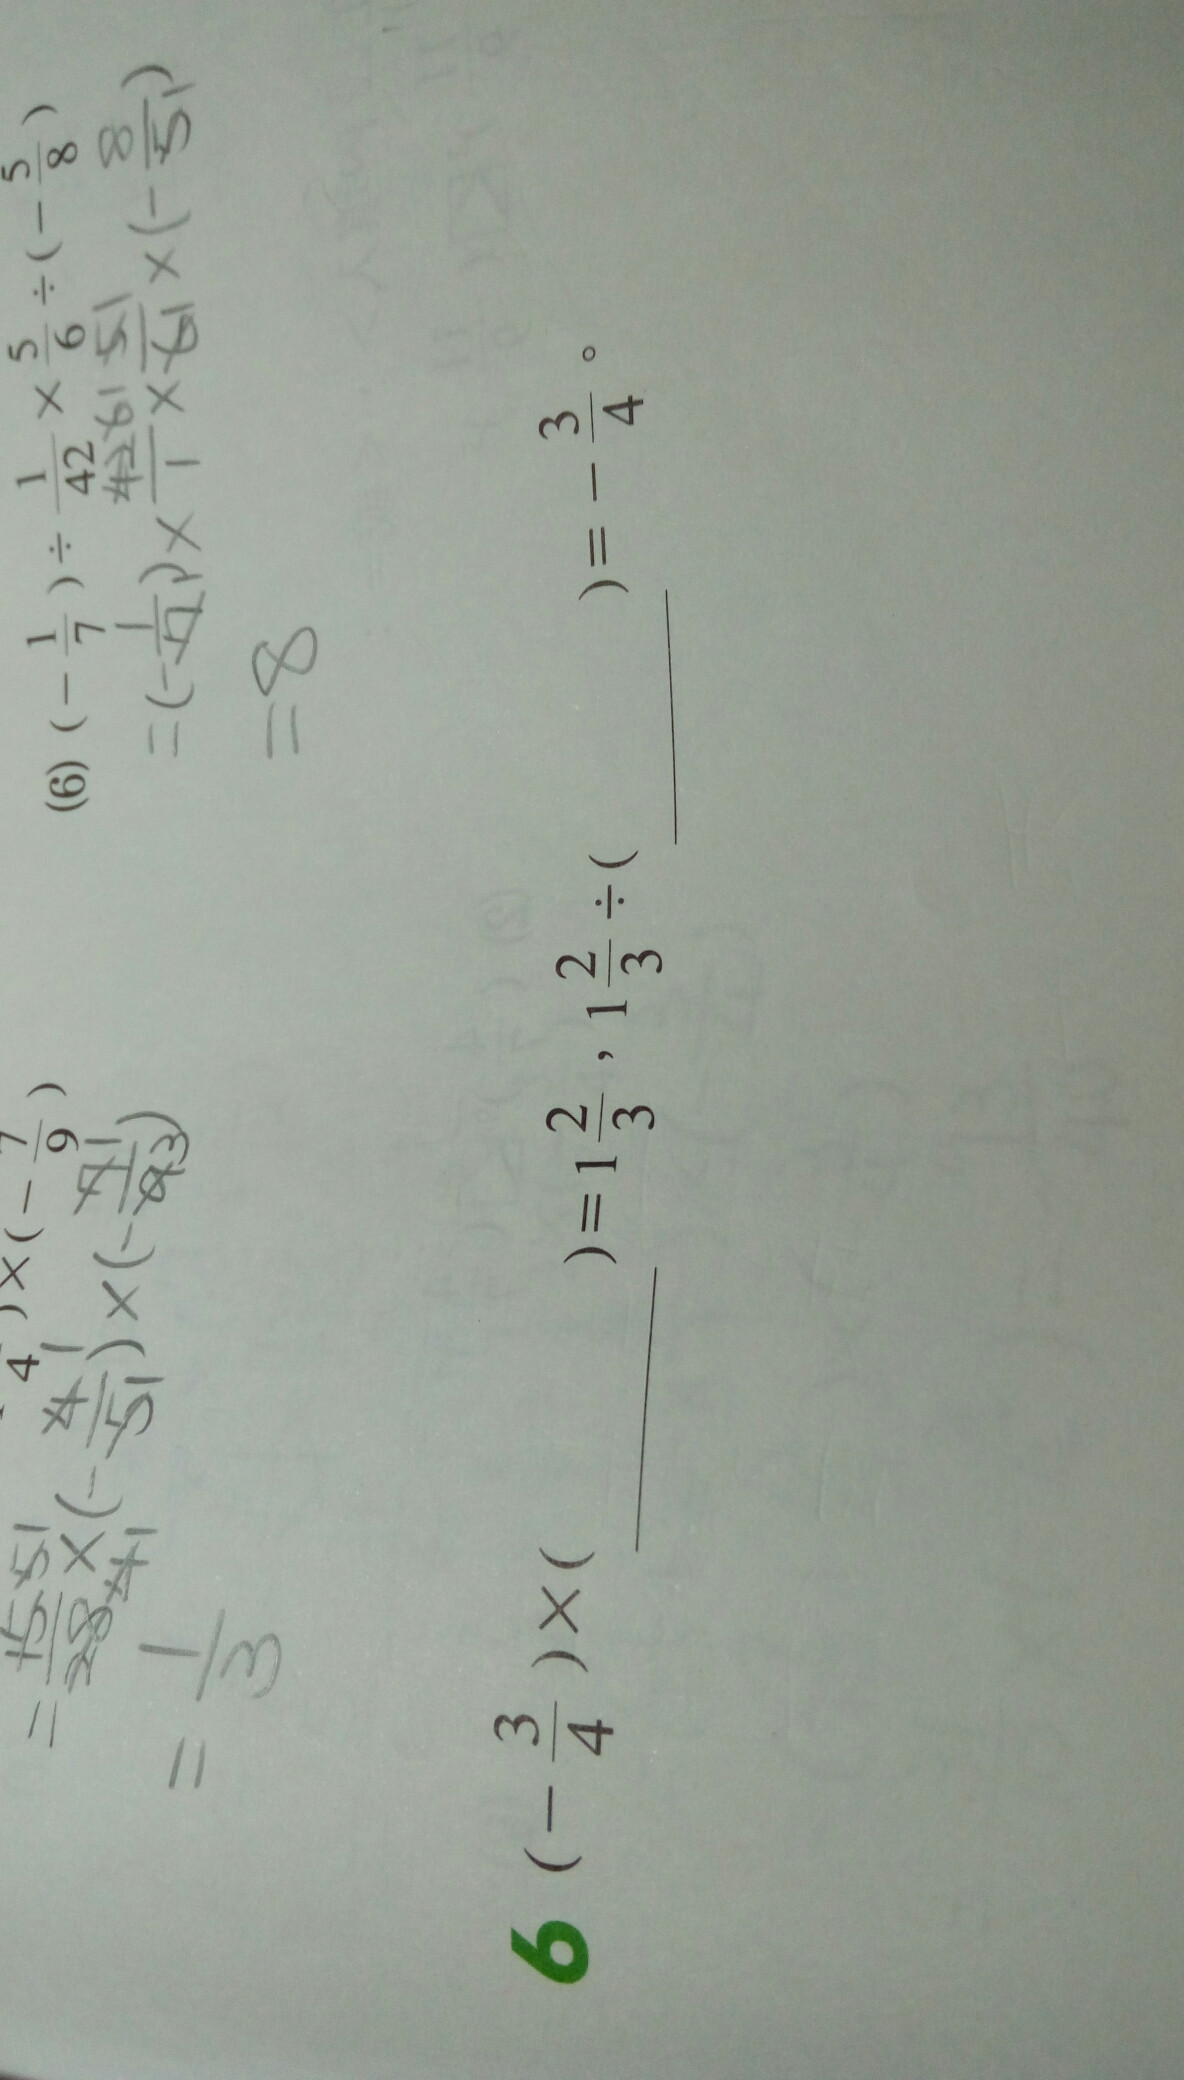 4 )×(− 7/9 )
= 15/28 ×(− 4/5 )×(− 7/9 )
= 1/3
(6) (− 1/7 )÷ 1/42 × 5/6 ÷(− 5/8 )
=(− 1/7 )× 42/1 × 5/6 ×(− 8/5 )
=8
6 (− 3/4 )×( ______ )=1 2/3 , 1 2/3 ÷( ______ )=− 3/4 。